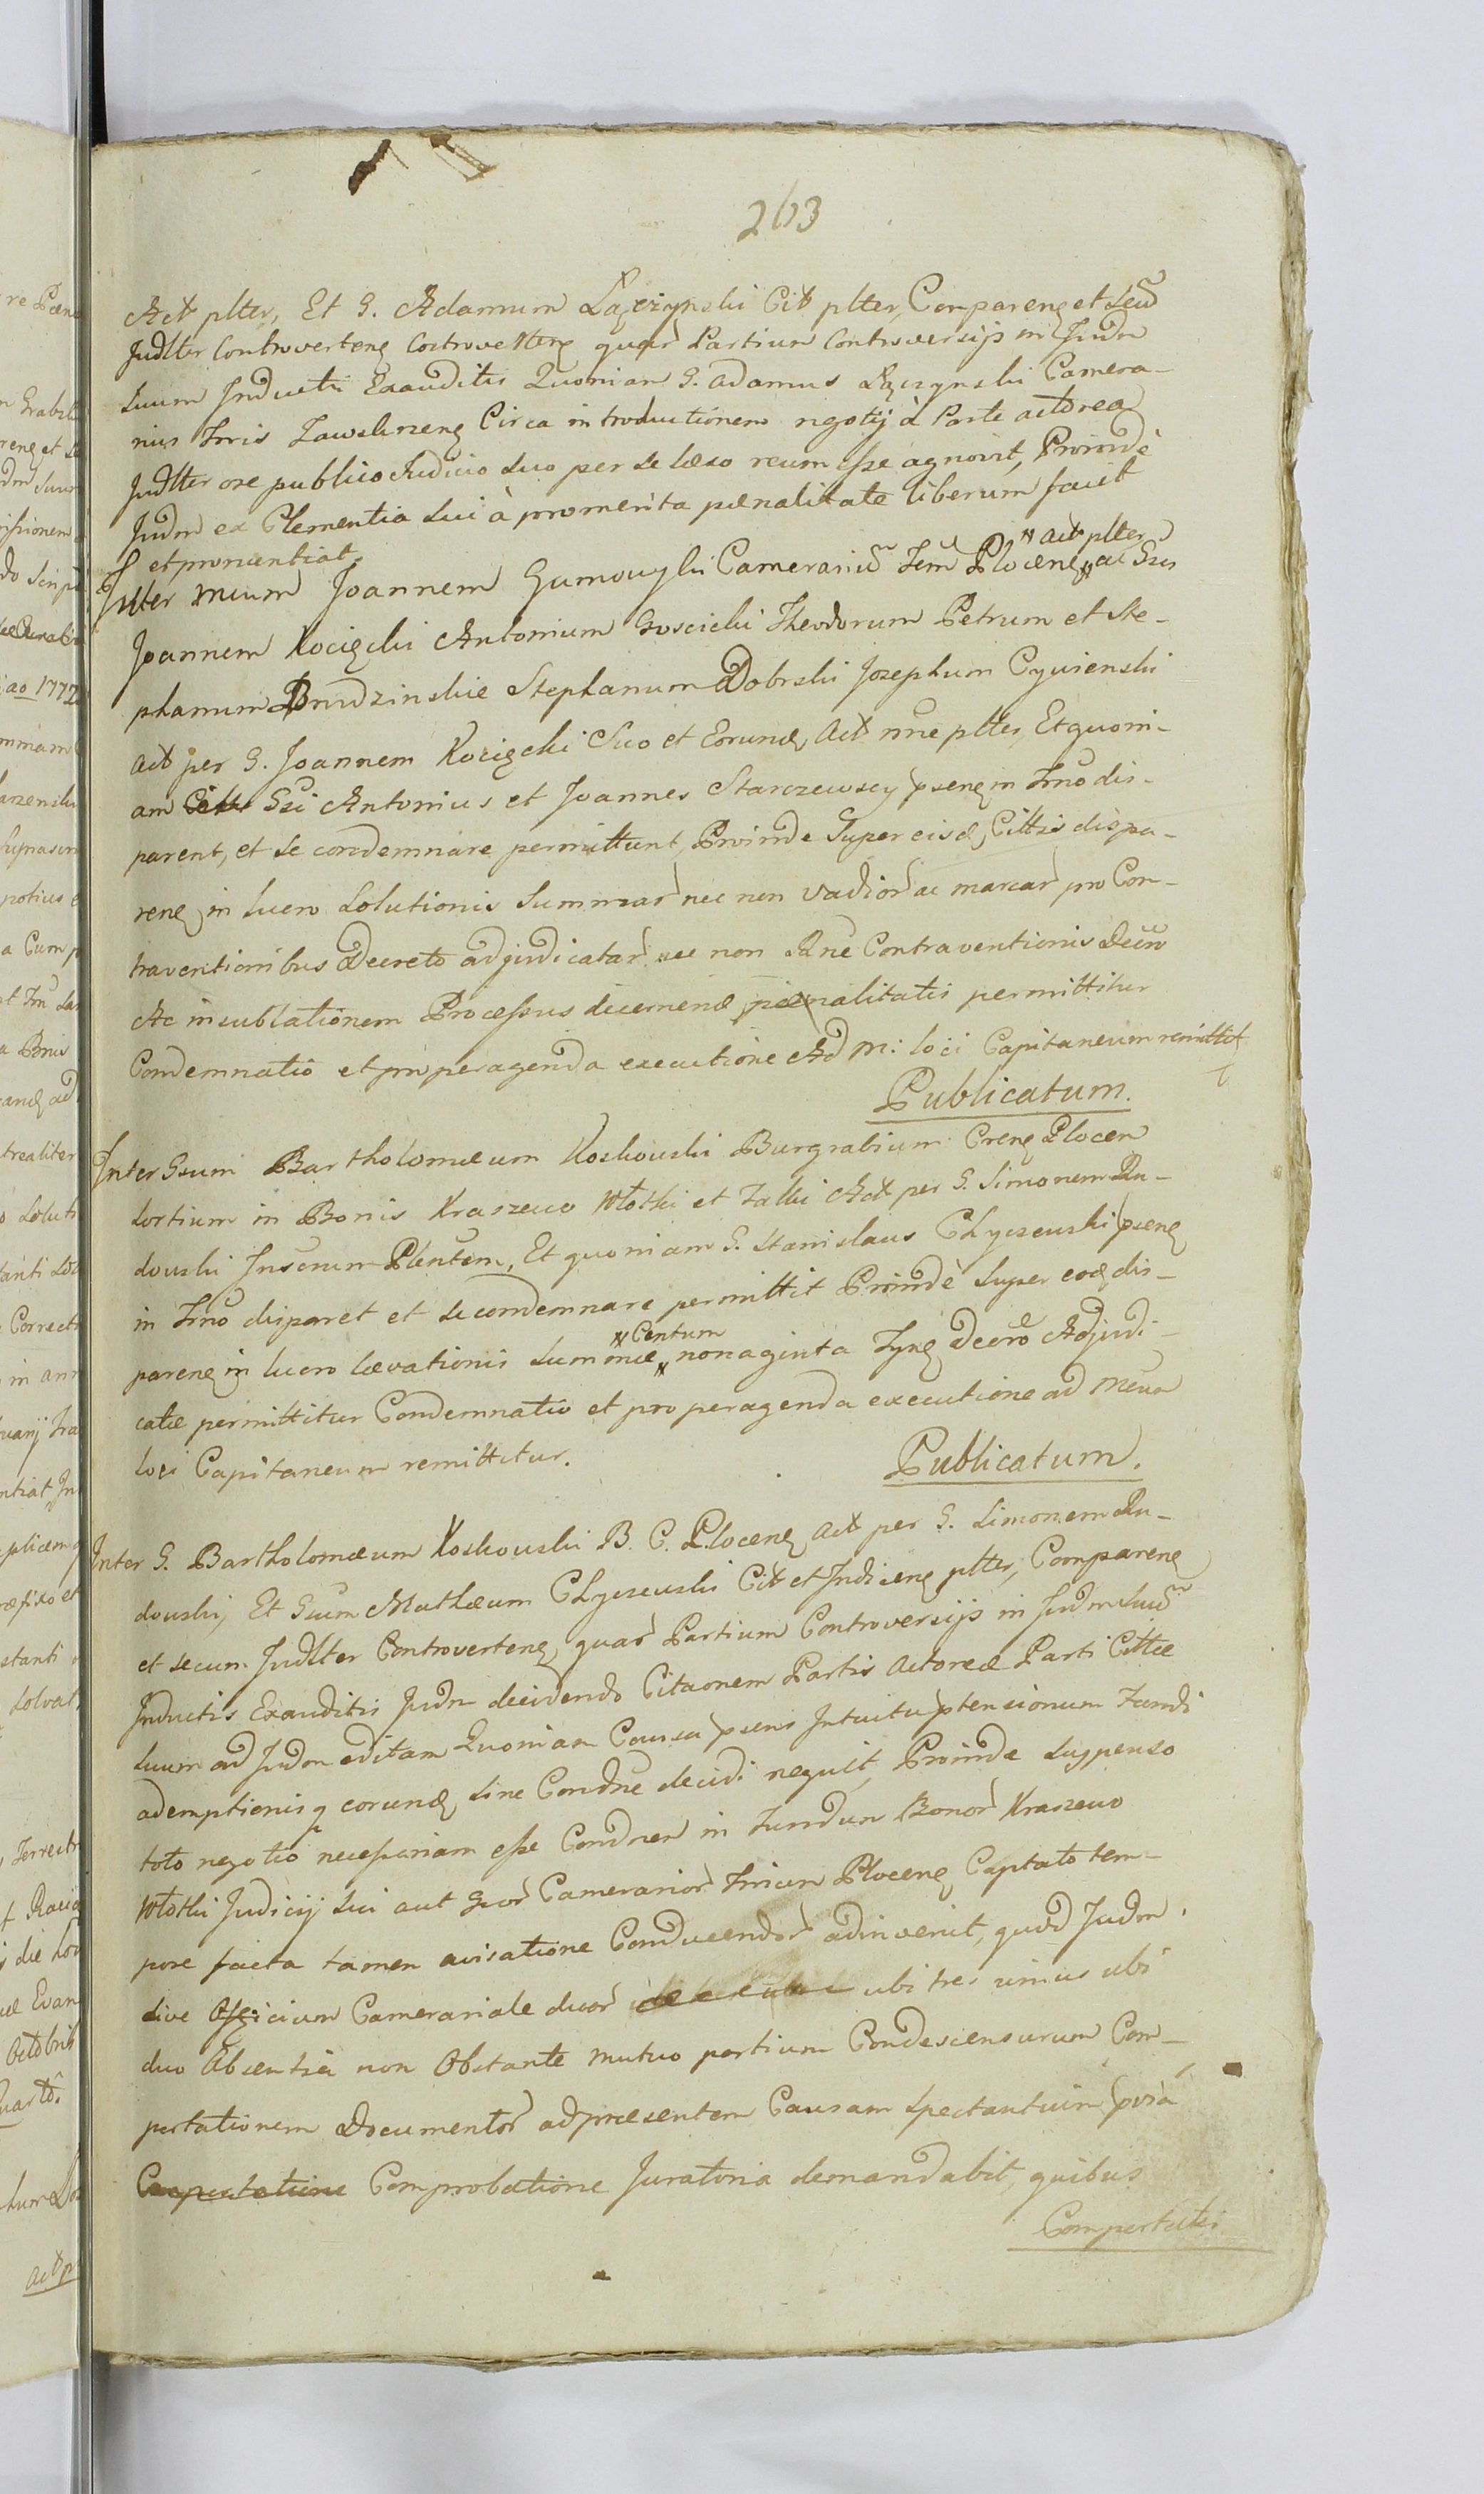 263
Act plter, Et G. Adamum Lączynski Cit plter, Comparen et Secu
Judlter Controverten Controverten quar Partium Controversijs in Judm
Suum Inductis Exauditis Quoniam G. Adamus Łączynski Camera-
rius Trris Zawskrzen Circa introductionem ngotij à Parte actorea
Judlter ore publico Judicio Suo per Se læso reum eße agnovit, Proinde
Judm ex Clementia Sui à promerita pænalitate liberum facit
et pronuntiat.
Inter Mcum Joannem Gumowski Camerariu Trru Plocen Act pltes ac Gsos
Joannem Kocięcki Antonium Goscicki Theodorum Petrum et Ste-
phanum Brudzinskie Stephanum Dobrski Josephum Cywienski
Act per G. Joannem Kocięcki Suo et Eorund Act nne pltes, Et quoni-
am Gsi Antonius et Joannes Starczewscy psen in Trno dis-
parent, et se condemnare permittunt, Proinde Super eisd, Cittis dispa-
ren in lucro Solutionis Summar nec non vadior ac marcar pro Con-
traventionibus Decreto adjudicatar nec non Rne Contraventionis Decro
Ac in sublationem Proceßus decernend pænalitatis permittitur
Condemnatio et pro peragenda executione Ad M: loci Capitaneum remittit
Publicatum.
Inter Gsum Bartholomæum Koskowski Burgrabium Cren Plocen
Sortium in Bonis Kraszewo Włotki et Falki Act per G. Simonem Ru-
dowski Juscrum Plentem, Et quoniam G. Stanislaus Chyczewski psen
in Trno disparet et se condemnare permittit Proinde Super eod dis-
paren in lucro lævationis Summæ Centum nonaginta Tyn Decro Adjudi-
catæ permittitur Condemnatio et pro peragenda executione ad Mcum
loci Capitaneum remittitur.
Publicatum.
Inter G. Bartholomæum Koskowski B. C. Plocen Act per G. Simonem Ru-
dowski, Et Gsum Mathæum Chyczewski Cit et Indicen pltes, Comparen
et secum Judlter Controverten, quar Partium Controversijs in Judm Suu
Inductis Exauditis Judm decidendo Citaonem Partis Actoreæ Parti Cittæ
Suum ad Judm editam Quoniam Causa psens Intuitu ptensionum Fundi
ademptionisq eorund, Sine Condne decidi nequit, Proinde Suspenso
toto negotio neceßariam eße Condnem in Fundum Bonor Kraszewo
Włotki Judicij Sui aut Gsor Camerarior Trrium Plocen Captato tem-
pore facta tamen avisatione Conducendor adinvenit, quod Judm
Sive Officium Camerariale duor ubi tres unius ubi
duo Absentia non Obstante mutuo partium Condescensurum Com-
portationem Documentor ad præsentem Causam Spectantium pvia
Comportatione Comprobatione Juratoria demandabit, quibus
Comportatis